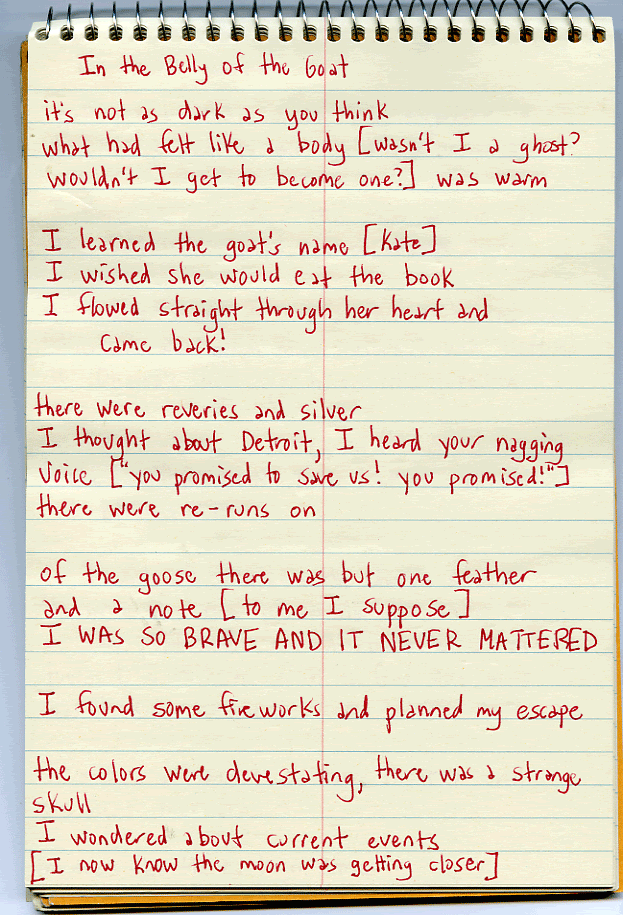 In the Belly of the Goat
it's not as dark as you think
what had felt like a body [wasn't I a ghost?
wouldn't I get to become one?] was warm
I learned the goat's name [Kate]
I wished she would eat the book
I flowed straight through her heart and
came back!
there were reveries and silver
I thought about Detroit, I heard your nagging
voice ["you promised to save us! you promised!"]
there were re-runs on
of the goose there was but one feather
and a note [to me I suppose]
I WAS SO BRAVE AND IT NEVER MATTERED
I found some fireworks and planned my escape
the colors were devestating, there was a strange
skull
I wondered about current events
[I now know the moon was getting closer]